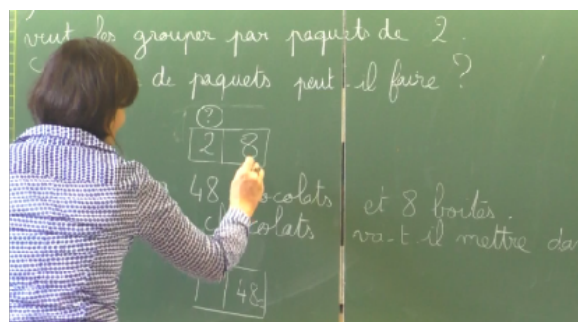 veut les grouper par paquets de 2.
de paquets peut-il faire ?
?
2 8
48 chocolats et 8 boîtes.
chocolats va-t-il mettre da
48